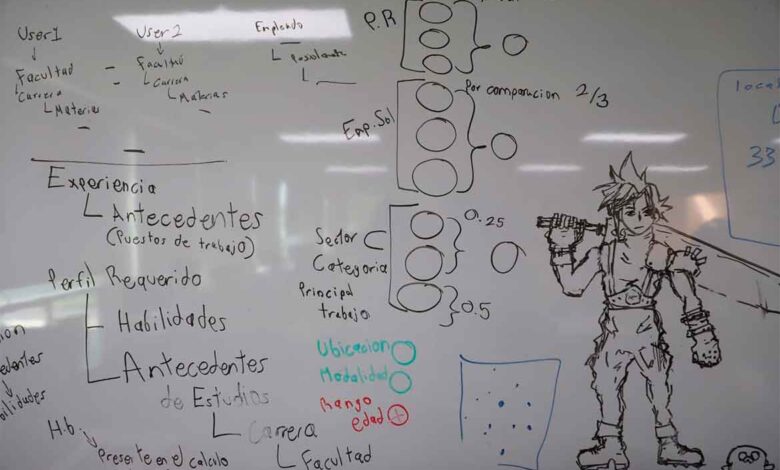 User 1
Facultad
Carrera
Materias
User 2
Facultad
Carrera
Materias
Empleado
P.R
Emp. Sol
Por comparación 2/3
Experiencia
Antecedentes
(Puestos de trabajo)
Perfil Requerido
Habilidades
Antecedentes
de Estudios
Carrera
Facultad
H.b
Presente en el calculo
Sector
Categoria
Principal
trabajo
0.25
0.5
Ubicacion
Modalidad
Rango
edad
local
33